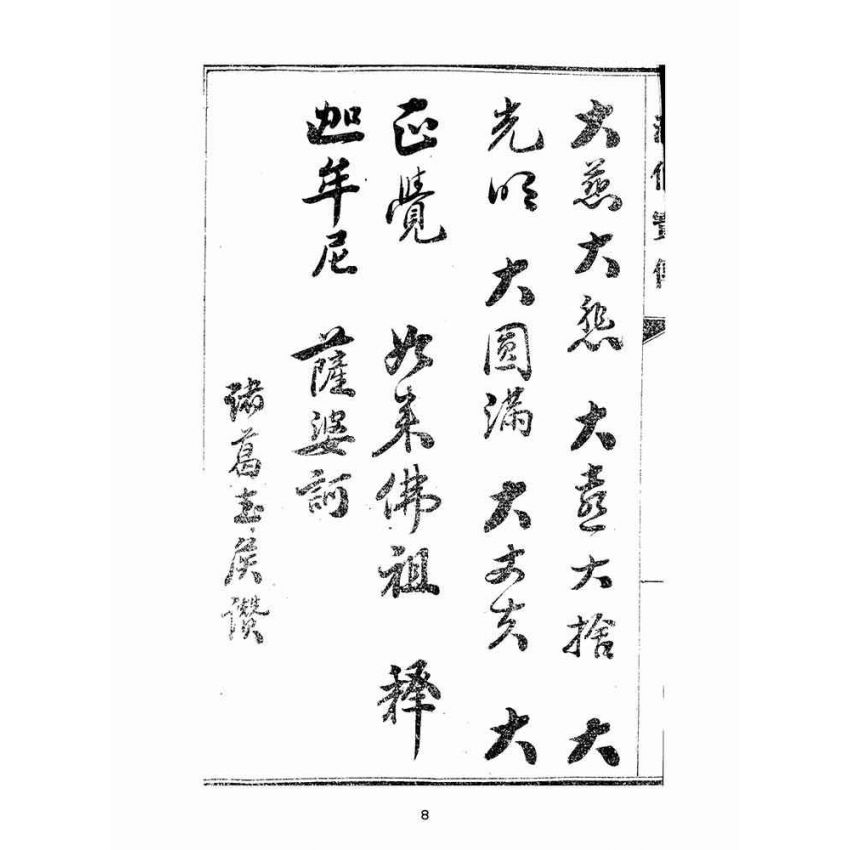 大慈大悲 大喜大捨 大
光明 大圓滿 大丈夫 大
正覺 如來佛祖 釋
迦牟尼 薩婆訶
諸葛武侯讚
8